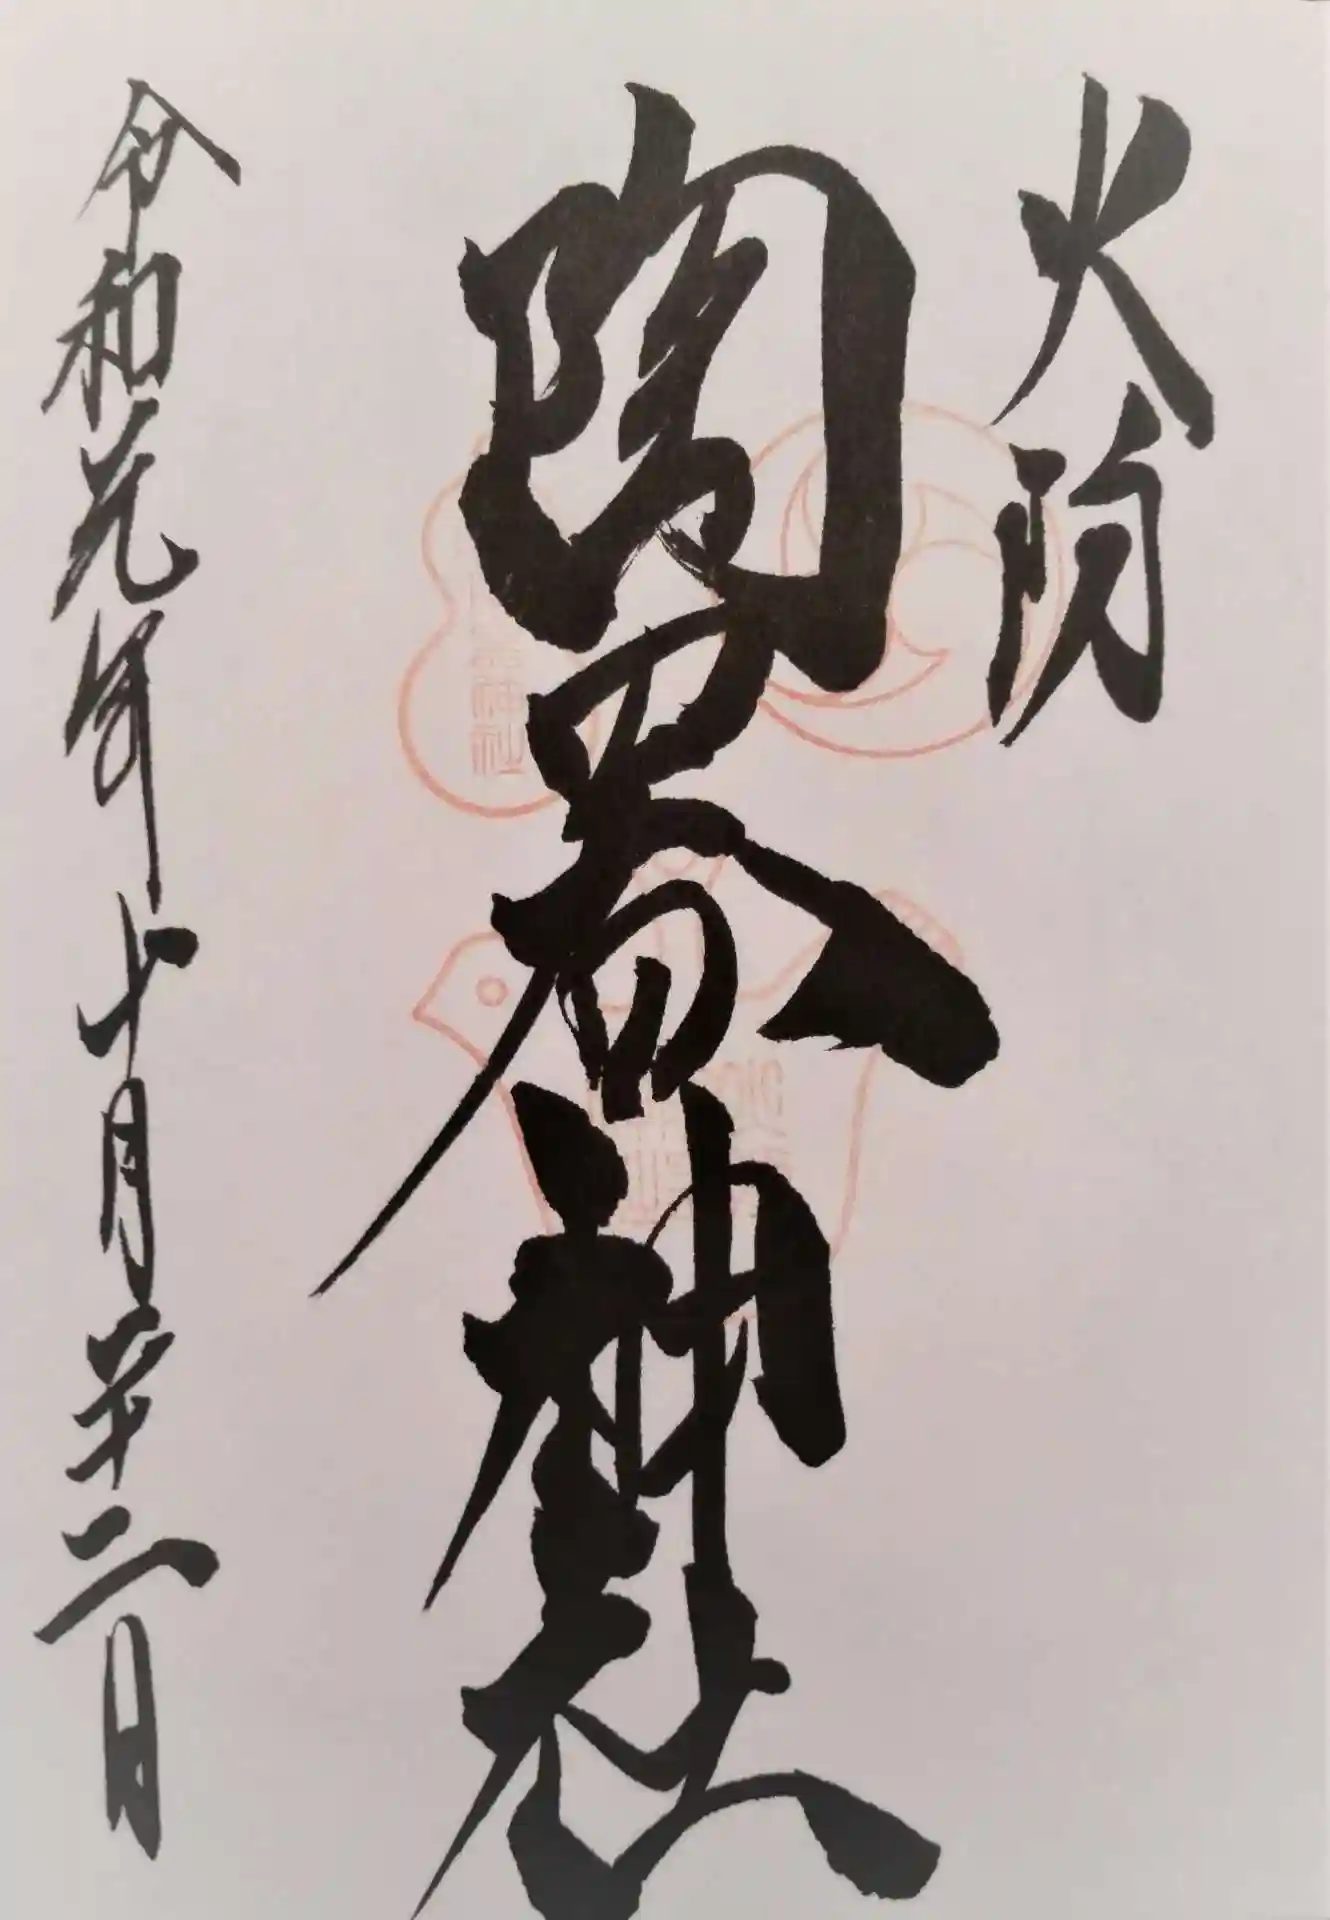 火防
陶器神社
令和元年十月廿二日